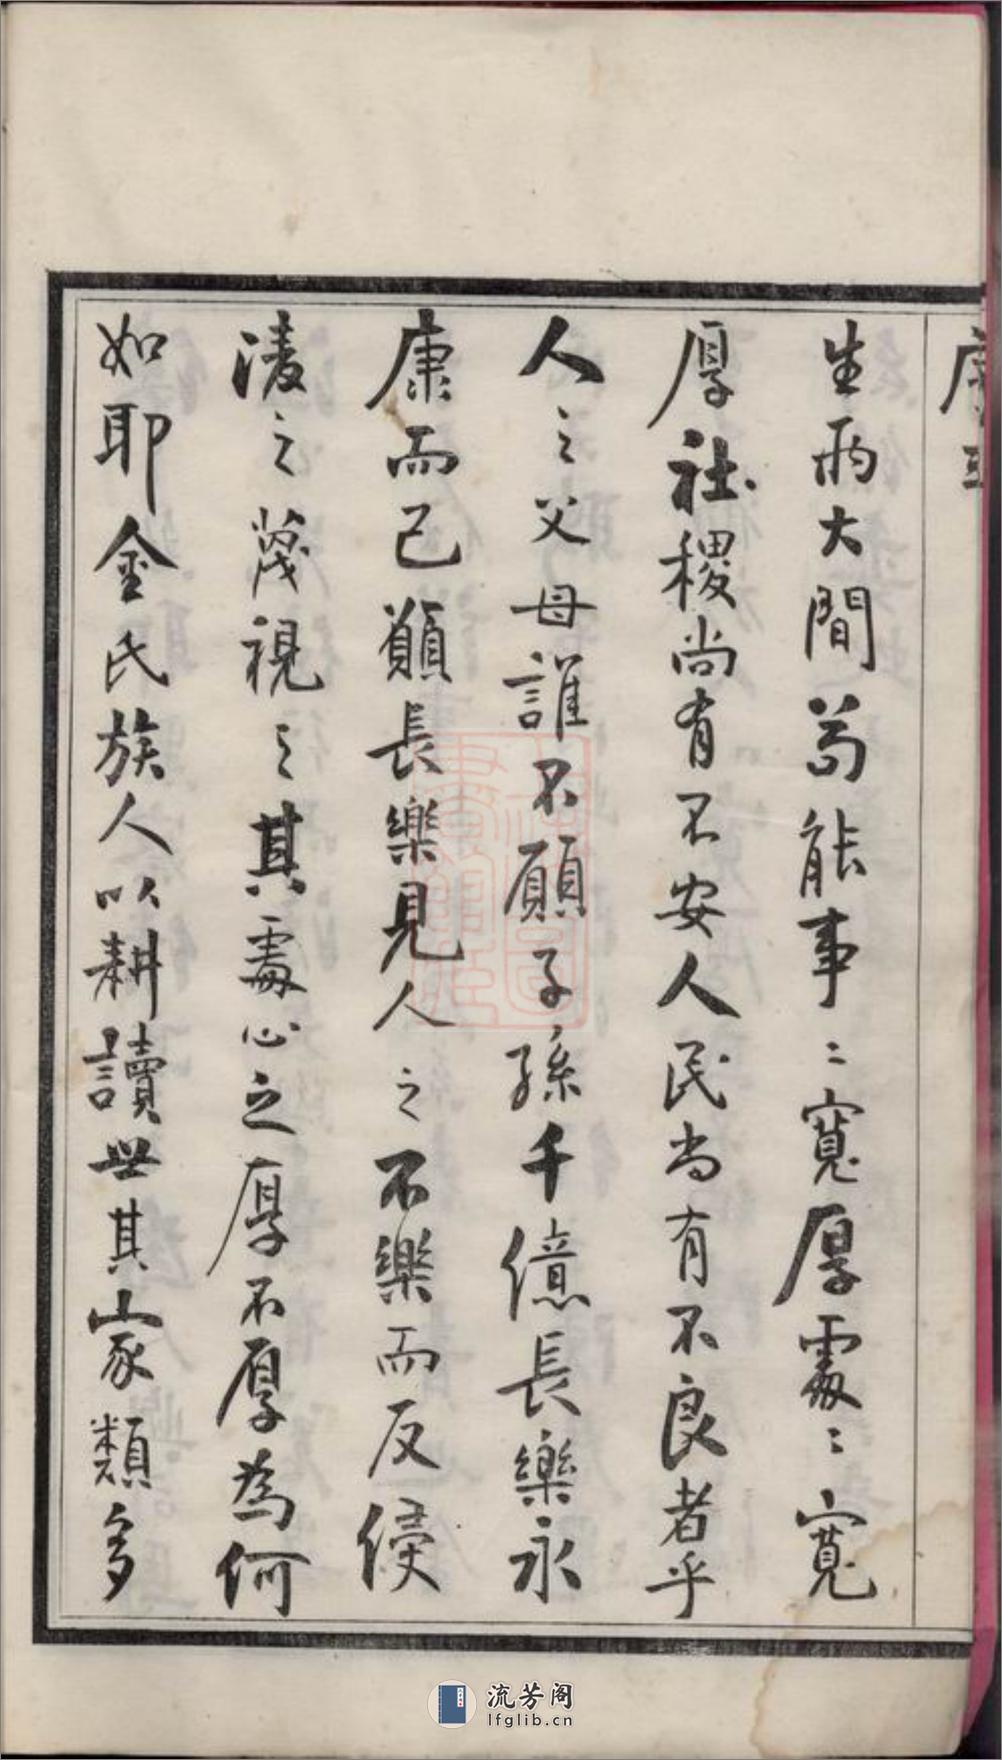 生両大間苟能事〻寬厚處〻寬
厚社稷尚有不安人民尚有不良者乎
人之父母誰不願子孫千億長樂永
康而己願長樂見人之不樂而反侵
凌之蔑視之其處心之厚不厚為何
如耶金氏族人以耕讀世其家類多
流芳阁
lfglib.cn